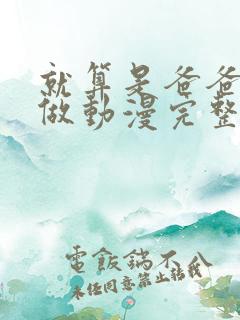 就算是爸爸
做動漫完整
電飯鍋不八
未經同意禁止轉載